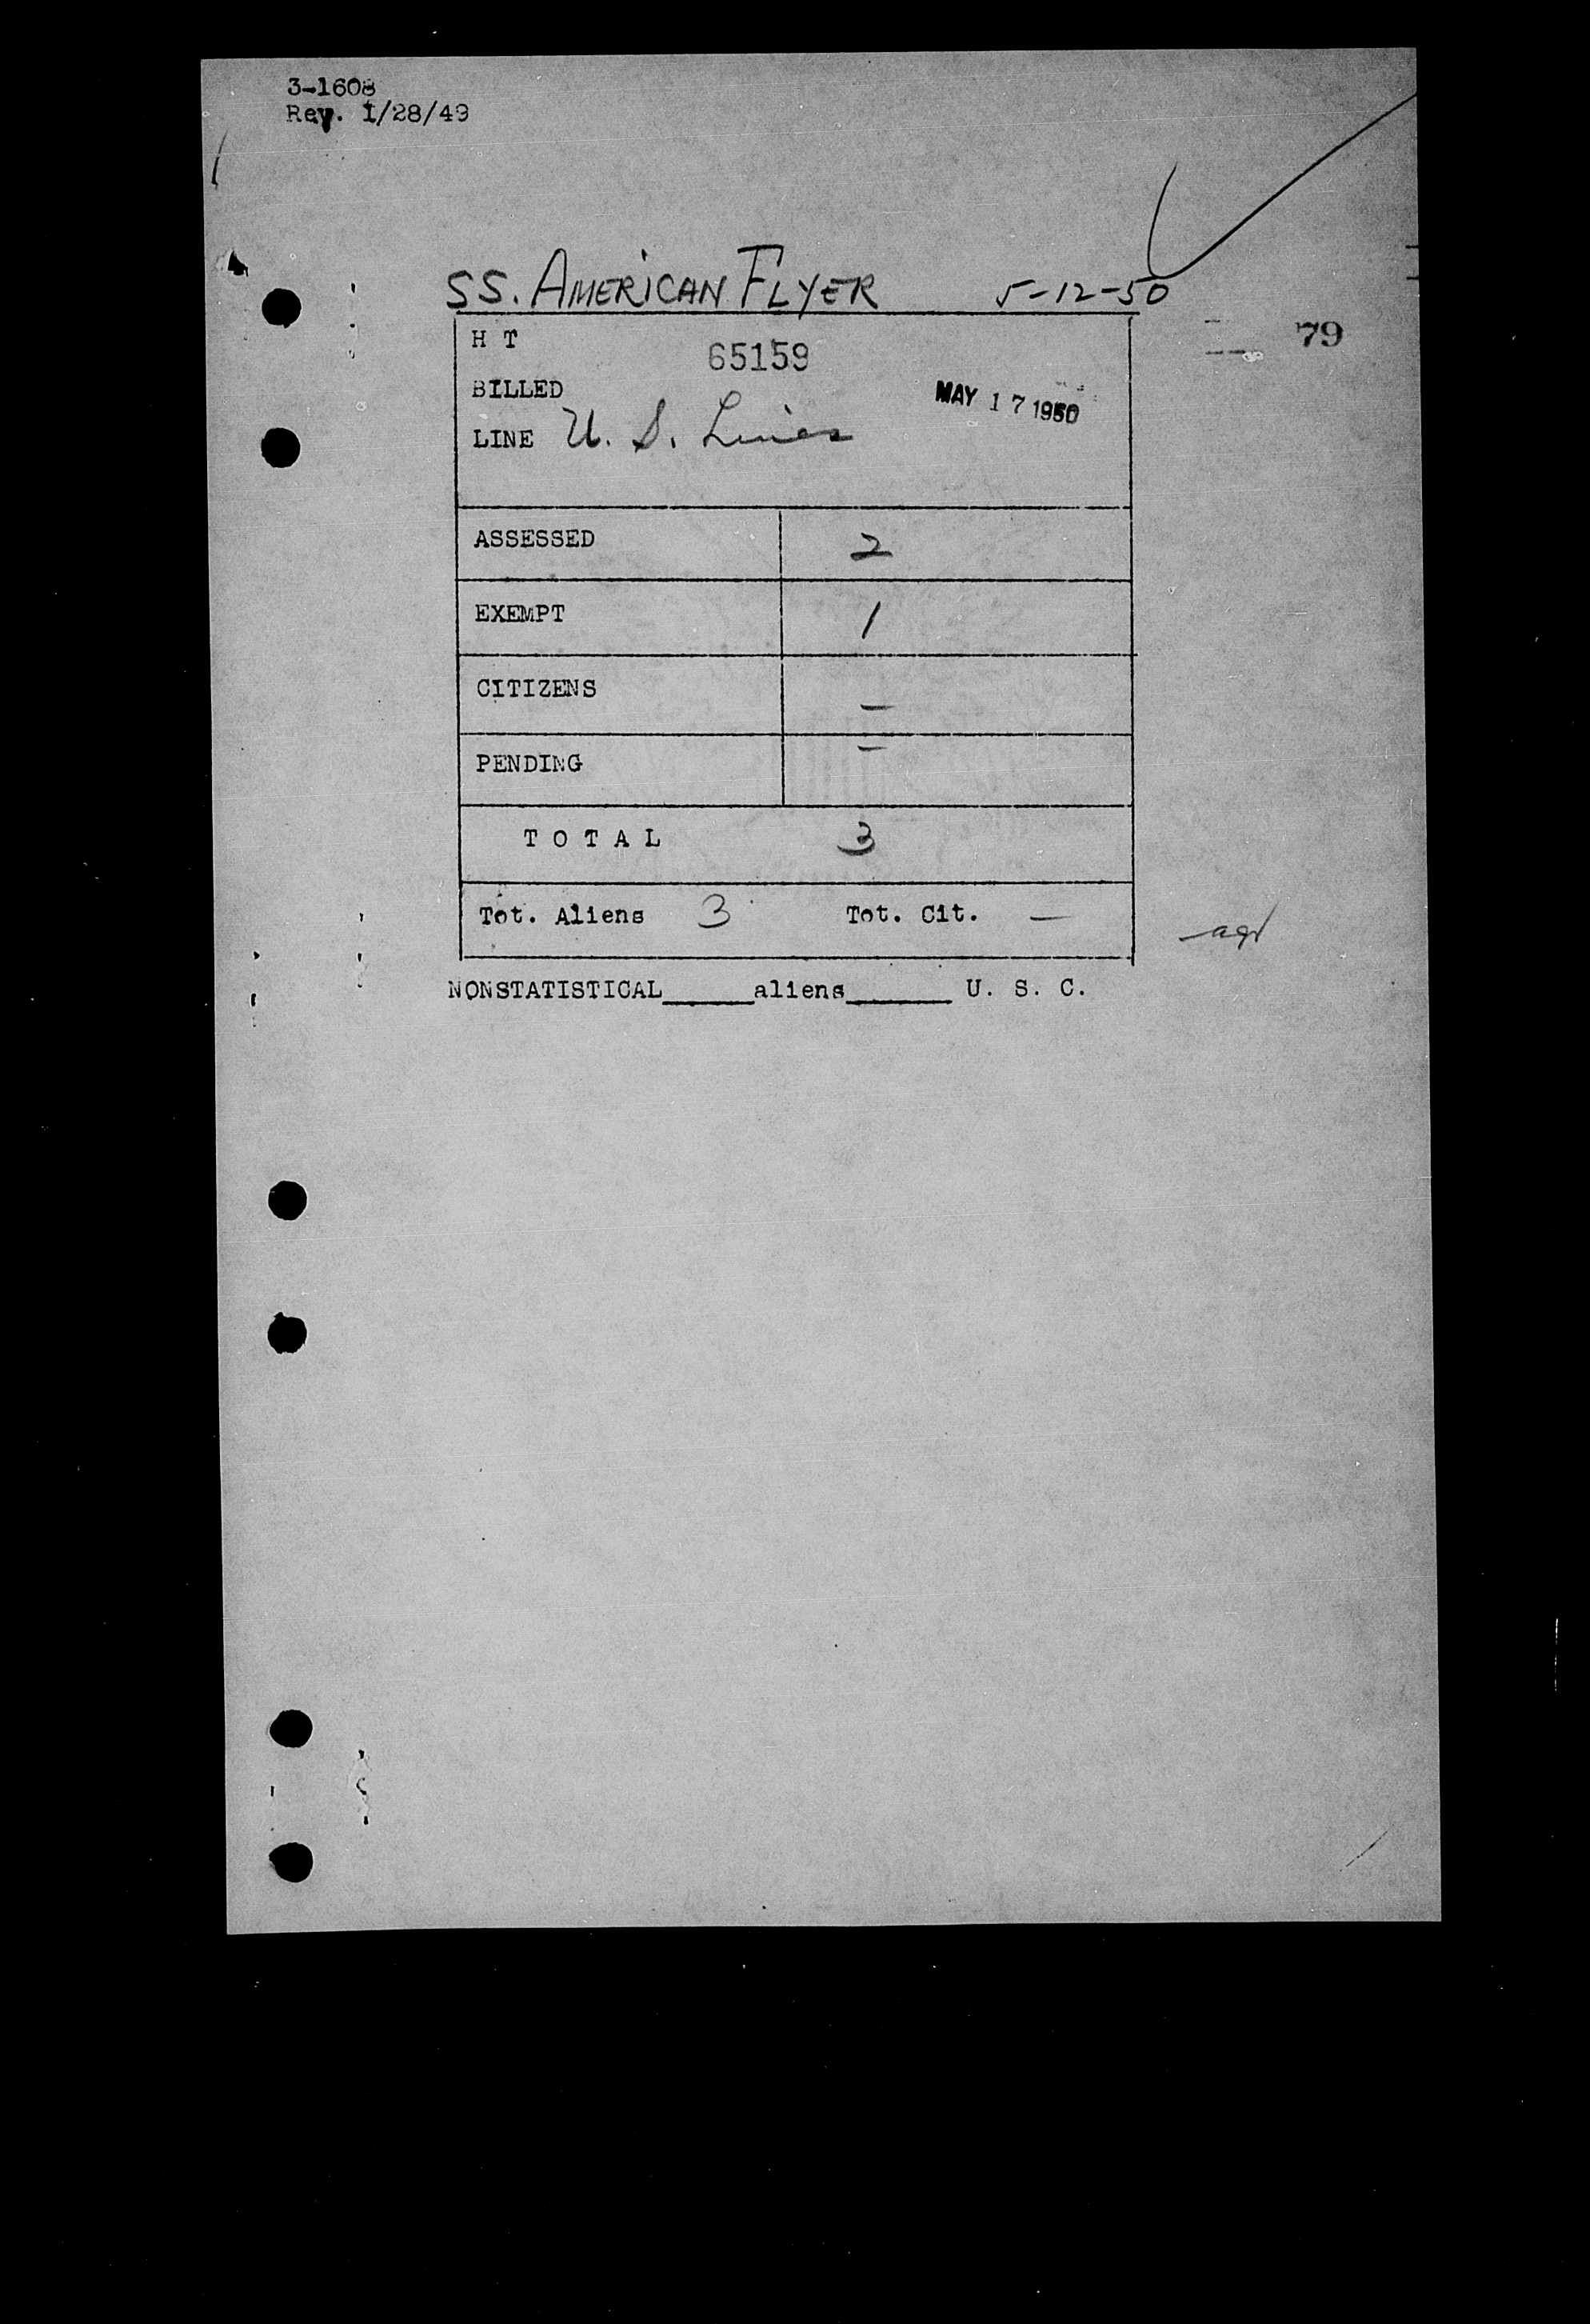 3-1608
Rev. 1/28/49
SS. AMERICAN FLYER 5-12-50
79
H T 65159
BILLED MAY 17 1950
LINE U. S. Lines
ASSESSED 2
EXEMPT 1
CITIZENS –
PENDING –
T O T A L 3
Tot. Aliens 3 Tot. Cit. —
NONSTATISTICAL______aliens_______ U. S. C.